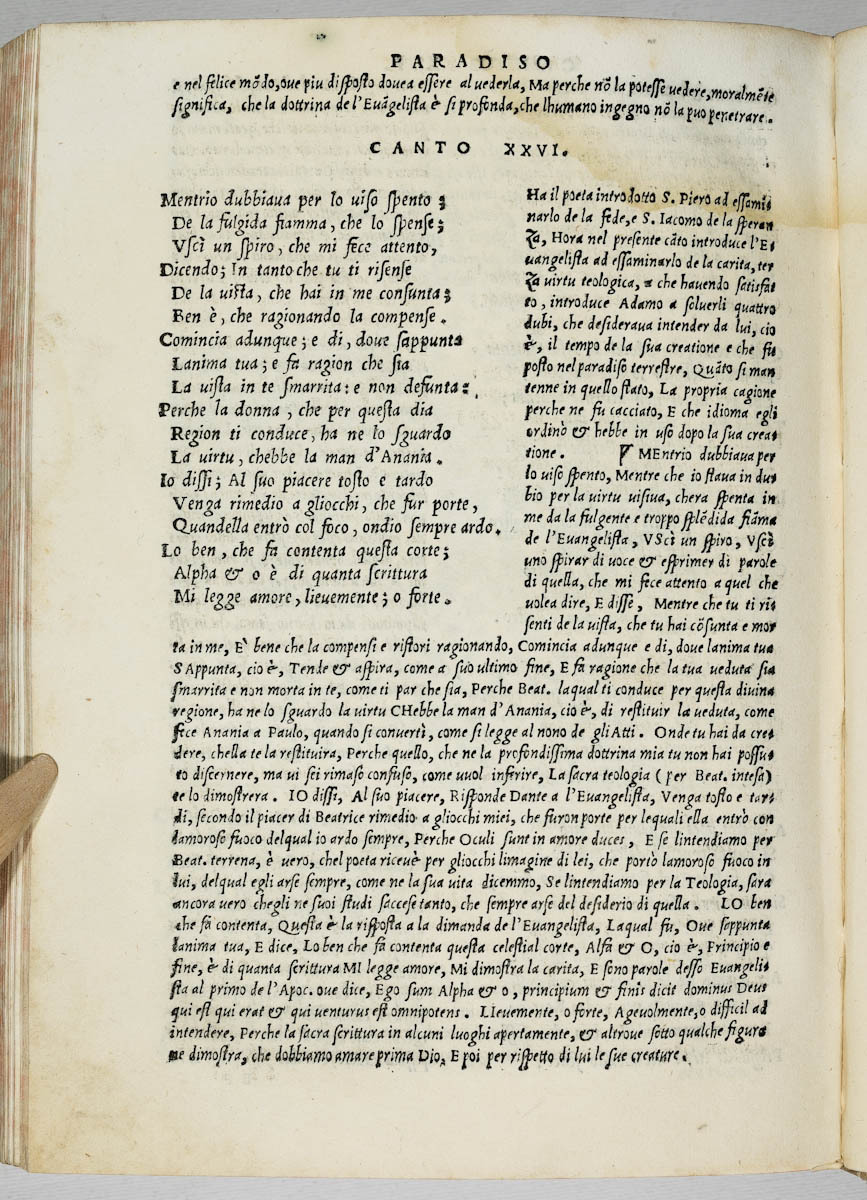 PARADISO
e nel felice mõdo, oue piu disposto douea essere al uederla, Ma perche nõ la potesse uedere, moralmẽte
significa, che la dottrina de l'Euãgelista è si profonda, che lhumano ingegno nõ la puo penetrare.
CANTO XXVI.
Mentrio dubbiaua per lo uiso spento;
De la fulgida fiamma, che lo spense;
Vscì un spiro, che mi fece attento,
Dicendo; In tanto che tu ti risense
De la uista, che hai in me consunta;
Ben è, che ragionando la compense.
Comincia adunque; e di, doue sappunta
Lanima tua; e fa ragion che sia
La uista in te smarrita: e non defunta:
Perche la donna, che per questa dia
Region ti conduce, ha ne lo sguardo
La uirtu, chebbe la man d'Anania.
Io dissi; Al suo piacere tosto e tardo
Venga rimedio a gliocchi, che fur porte,
Quandella entrò col foco, ondio sempre ardo.
Lo ben, che fa contenta questa corte;
Alpha & o è di quanta scrittura
Mi legge amore, lieuemente; o forte.
Ha il poeta introdotto S. Piero ad essami-
narlo de la fede, e S. Iacomo de la speran
za, Hora nel presente cãto introduce l'E-
uangelista ad essaminarlo de la carita, ter
za uirtu teologica, & che hauendo satisfat
to, introduce Adamo a soluerli quattro
dubi, che desideraua intender da lui, cio
è, il tempo de la sua creatione e che fu
posto nel paradiso terrestre, Quãto si man
tenne in quello stato, La propria cagione
perche ne fu cacciato, E che idioma egli
ordinò & hebbe in uso dopo la sua crea-
tione. MEntrio dubbiaua per
lo uiso spento, Mentre che io staua in du-
bio per la uirtu uisiua, chera spenta in
me da la fulgente e troppo splẽdida fiãma
de l'Euangelista, VScì un spiro, Vscì
uno spirar di uoce & esprimer di parole
di quella, che mi fece attento a quel che
uolea dire, E disse, Mentre che tu ti ri-
senti de la uista, che tu hai cõsunta e mor-
ta in me, E' bene che la compensi e ristori ragionando, Comincia adunque e di, doue lanima tua
SAppunta, cio è, Tende & aspira, come a suo ultimo fine, E fa ragione che la tua ueduta sia
smarrita e non morta in te, come ti par che sia, Perche Beat. laqual ti conduce per questa diuina
regione, ha ne lo sguardo la uirtu CHebbe la man d'Anania, cio è, di restituir la ueduta, come
fece Anania a Paulo, quando si conuertì, come si legge al nono de gli Atti. Onde tu hai da cre-
dere, chella te la restituira, Perche quello, che ne la profondissima dottrina mia tu non hai possu-
to discernere, ma ui sei rimaso confuso, come uuol inferire, La sacra teologia (per Beat. intesa)
te lo dimostrera. IO dissi, Al suo piacere, Risponde Dante a l'Euangelista, Venga tosto e tar-
di, secondo il piacer di Beatrice rimedio a gliocchi miei, che furon porte per lequali ella entrò con
lamoroso fuoco delqual io ardo sempre, Perche Oculi sunt in amore duces, E se lintendiamo per
Beat. terrena, è uero, chel poeta riceuè per gliocchi limagine di lei, che portò lamoroso fuoco in
lui, delqual egli arse sempre, come ne la sua uita dicemmo, Se lintendiamo per la Teologia, sara
ancora uero chegli ne suoi studi saccese tanto, che sempre arse del desiderio di quella. LO ben
che fa contenta, Questa è la risposta a la dimanda de l'Euangelista, Laqual fu, Oue sappunta
lanima tua, E dice, Lo ben che fa contenta questa celestial corte, Alfa & O, cio è, Principio e
fine, è di quanta scrittura MI legge amore, Mi dimostra la carita, E sono parole desso Euangeli-
sta al primo de l'Apoc. oue dice, Ego sum Alpha & o, principium & finis dicit dominus Deus
qui est qui erat & qui uenturus est omnipotens. LIeuemente, o forte, Ageuolmente, o difficil ad
intendere, Perche la sacra scrittura in alcuni luoghi apertamente, & altroue sotto qualche figura
ne dimostra, che dobbiamo amare prima Dio, E poi per rispetto di lui le sue creature.